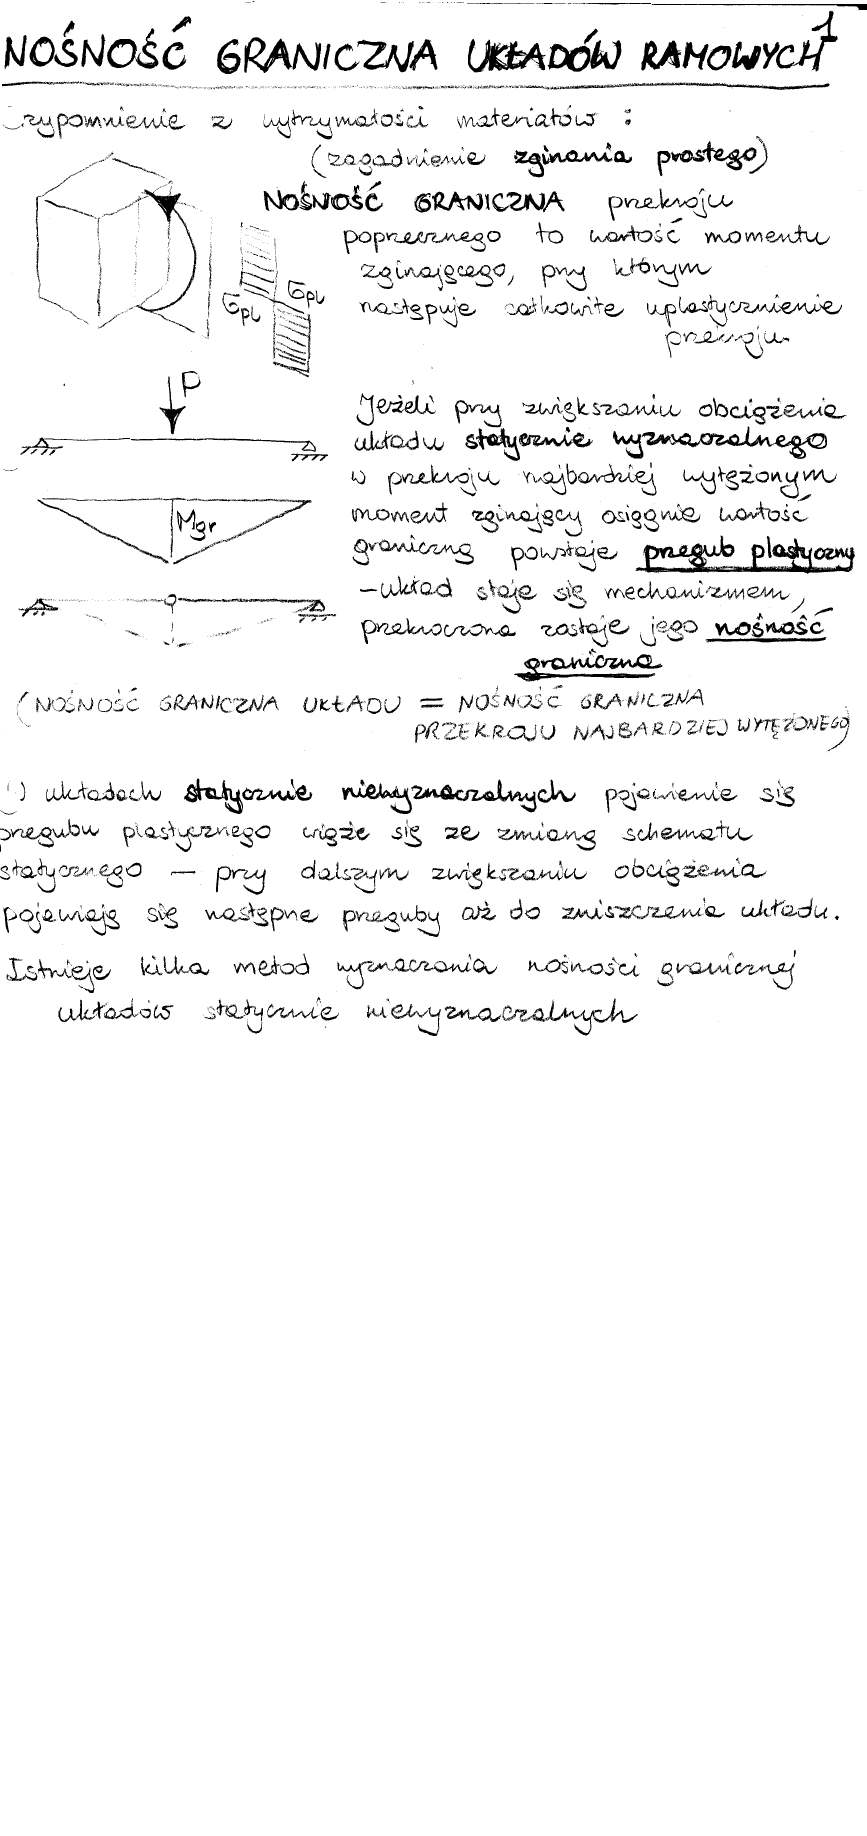 1
NOŚNOŚĆ GRANICZNA UKŁADÓW RAMOWYCH
rzypomnienie z wytrzymałości materiałów :
(zagadnienie zginania prostego)
NOŚNOŚĆ GRANICZNA przekroju
poprzecznego to wartość momentu
zginającego, przy którym
następuje całkowite uplastycznienie
przekroju.
σpl
σpl
P
Jeżeli przy zwiększaniu obciążenia
układu statycznie wyznaczalnego
w przekroju najbardziej wytężonym
moment zginający osiągnie wartość
graniczną powstaje przegub plastyczny
– układ staje się mechanizmem,
przekroczona zostaje jego nośność
graniczna
Mgr
(NOŚNOŚĆ GRANICZNA UKŁADU = NOŚNOŚĆ GRANICZNA
PRZEKROJU NAJBARDZIEJ WYTĘŻONEGO)
układach statycznie niewyznaczalnych pojawienie się
przegubu plastycznego wiąże się ze zmianą schematu
statycznego – przy dalszym zwiększaniu obciążenia
pojawiają się następne przeguby aż do zniszczenia układu.
Istnieje kilka metod wyznaczania nośności granicznej
układów statycznie niewyznaczalnych